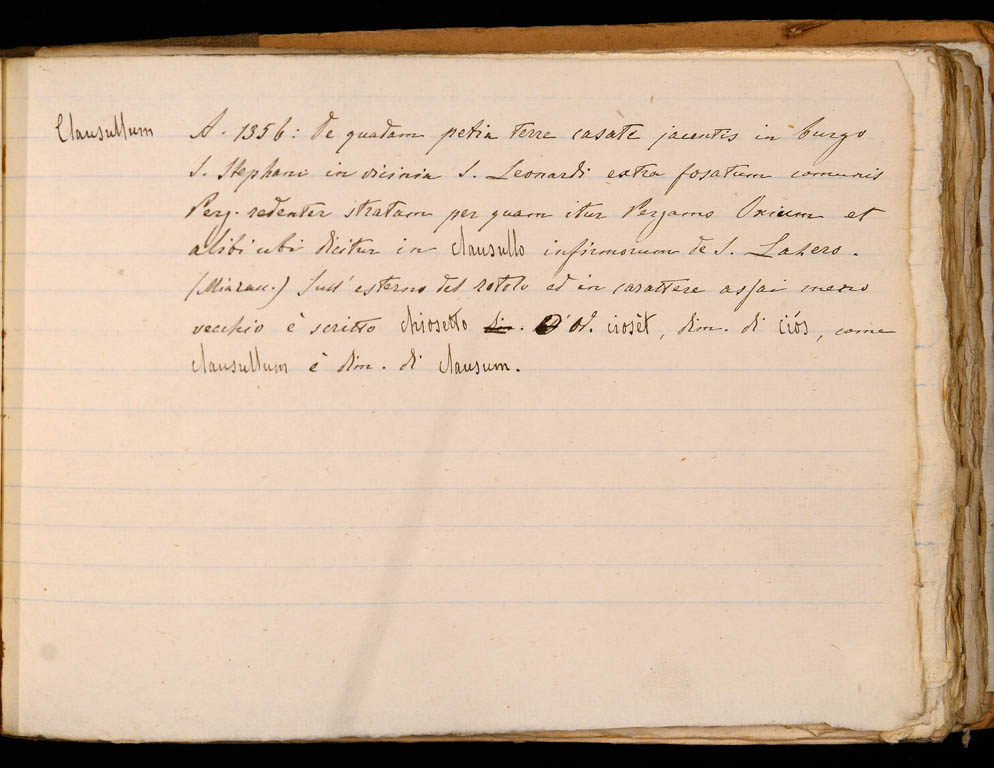 Clausullum A. 1356: De quadam petia terre casate jacentis in burgo
S. Stephani in vicinia S. Leonardi extra fosatum comunis
Perg. redenter stratam per quam itur Pergamo Oxium et
alibi ubi dicitur in clausullo infirmorum de S. Lazero.
(Minzau.) Sull' esterno del rotolo ed in carattere assai meno
vecchio è scritto chiosetto Od. ciosèt, dim. di ciós, come
clausullum è dim. di clausum.